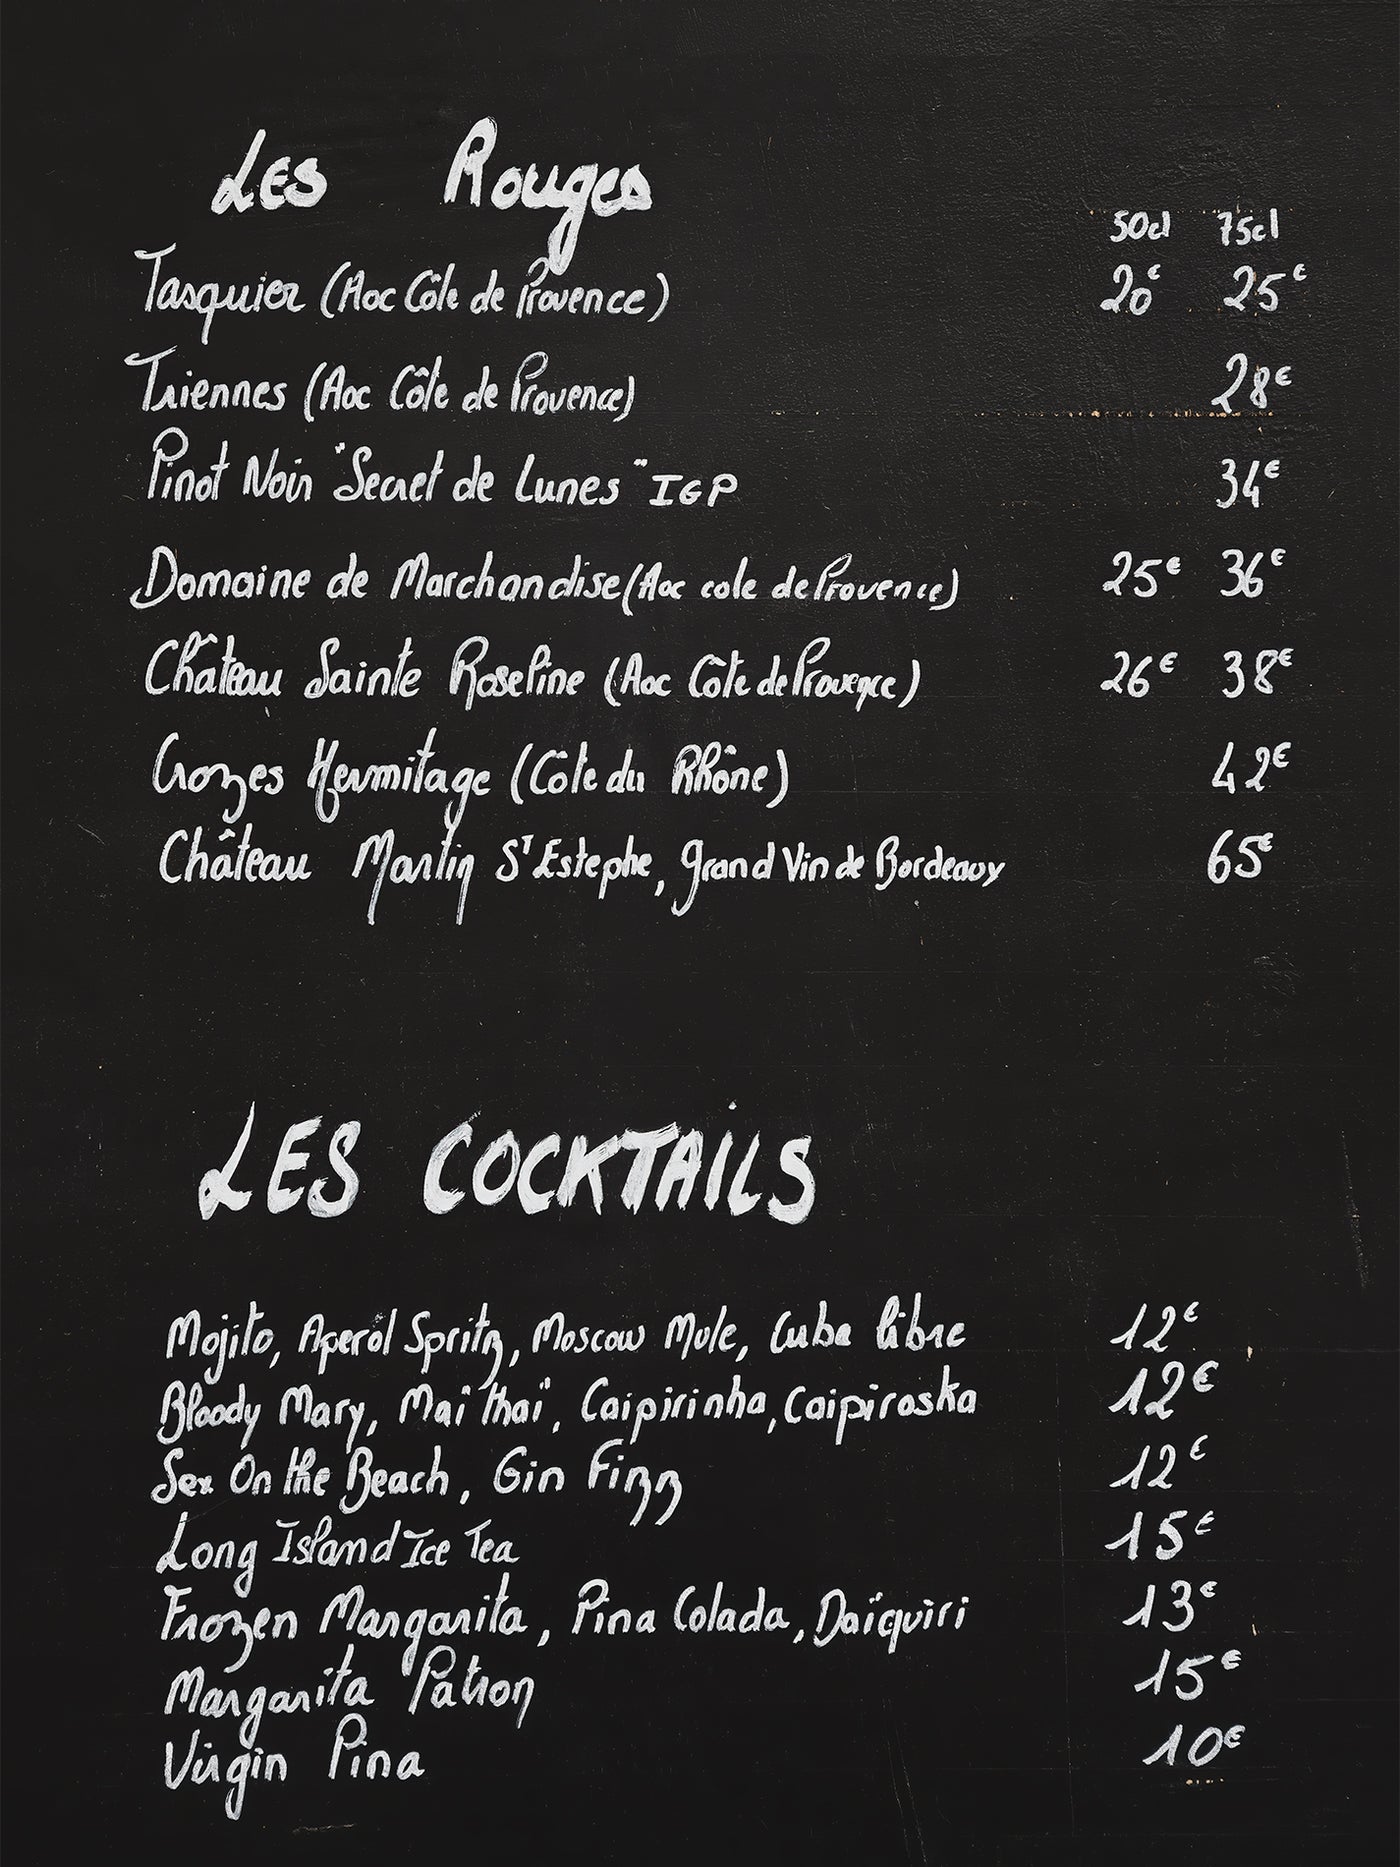 Les Rouges
50cl 75cl
Tasquier (Aoc Côte de Provence) 20€ 25€
Triennes (Aoc Côte de Provence) 28€
Pinot Noir "Secret de Lunes" IGP 34€
Domaine de Marchandise (Aoc cote de Provence) 25€ 36€
Château Sainte Roseline (Aoc Côte de Provence) 26€ 38€
Crozes Hermitage (Côte du Rhône) 42€
Château Martin ST Estephe, grand Vin de Bordeaux 65€
LES COCKTAILS
Mojito, Aperol Spritz, Moscow Mule, Cuba libre 12€
Bloody Mary, Maï thaï, Caipirinha, Caipiroska 12€
Sex On the Beach, Gin Fizz 12€
Long Island Ice Tea 15€
Frozen Margarita, Pina Colada, Daïquiri 13€
Margarita Patron 15€
Virgin Pina 10€